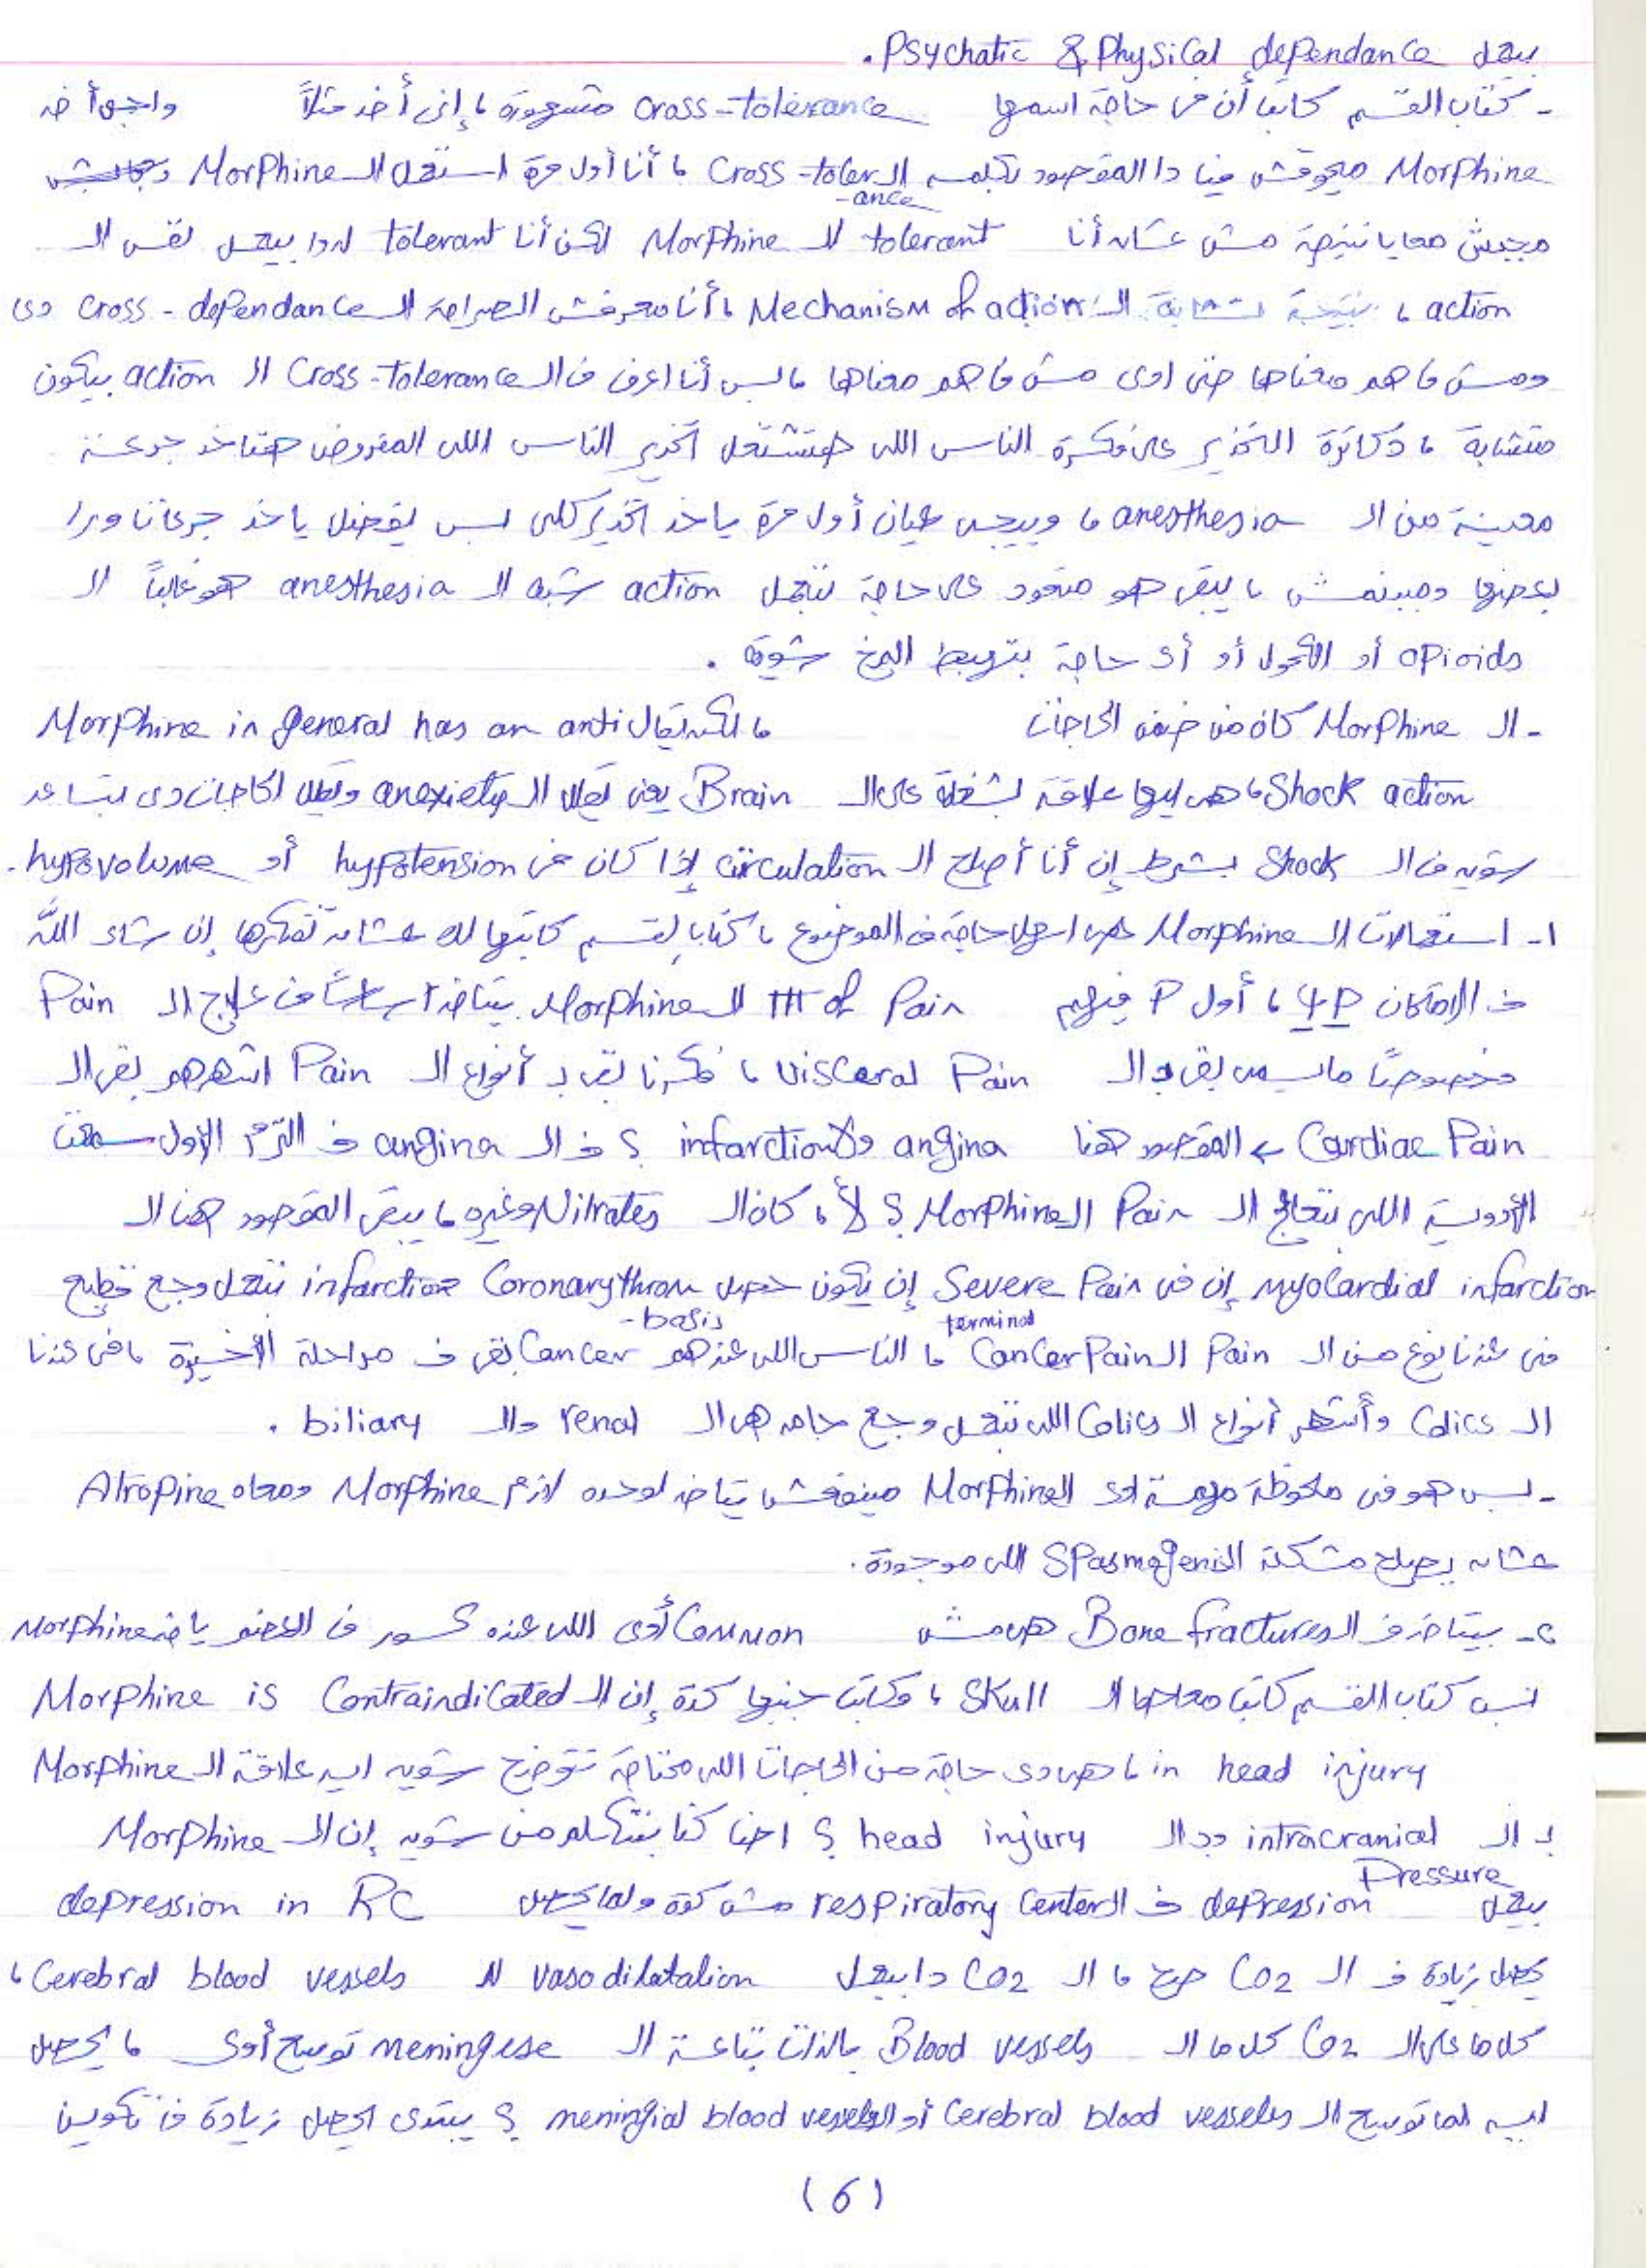 بيعمل Psychatic & Physical dependance.
- كتاب القسم كاتب أن في حاجة اسمها cross-tolerance مشهورة، إني أخد مثلاً واجي أخد
Morphine ميجوقش فيا دا المقصود بكلمة الـ Cross-tolerance، أنا أول مرة استعمل الـ Morphine
مجبش معايا نتيجة مش عشان أنا tolerant لـ Morphine لكن أنا tolerant لدوا بيعمل نفس الـ
action، نتيجة تشابة الـ Mechanism of action، أنا معرفش الصراحة الـ cross-dependance دي
ومش فاهم معناها حتى اوي مش فاهم معناها، بس أنا اعرف في الـ Cross-tolerance الـ action بيكون
متشابة، دكاترة التخدير على فكرة الناس اللي هتشتغل تخدير الناس اللي المفروض هتاخد جرعة
معينة من الـ anesthesia، وبيجي عيان أول مرة ياخد تخدير كلي بس يفضل ياخد جرعات ورا
بعضها ومبينمش، يبقى هو متعود على حاجة بتعمل action شبه الـ anesthesia هو غالباً الـ
opioids أو الكحول أو أي حاجة بتهبط المخ شوية.
- الـ Morphine كان من ضمن الحاجات، الكـ بتقال Morphine in general has an anti
Shock action، هي ليها علاقة بشغلة على الـ Brain يعني تقلل الـ anexiety وتقلل الحاجات دي بتساعد
شوية في الـ Shock بشرط إن أنا أصلح الـ circulation إذا كان في hypotension أو hypovolume.
١- استعمالات الـ Morphine هي اسهل حاجة في الموضوع، كتاب القسم كاتبها لك عشان تفتكرها إن شاء اللّه
في الامتحان 4P، أول P فيهم ttt of Pain الـ Morphine بيتاخد أساساً في علاج الـ Pain
وخصوصاً ما يسمى بقى بالـ visceral Pain، فكرنا بقى بـ أنواع الـ Pain اشهرهم بقى الـ
Cardiac Pain ← المقصود هنا angina ولا infarction؟ في الـ angina في الترم الأول سمعت
الأدوية اللي بتعالج الـ Pain الـ Morphine؟ لأ، كان الـ Nitrates وغيره، يبقى المقصود هنا الـ
myocardial infarction إن في Severe Pain إن يكون حصل Coronary thrombasis infarction بتعمل وجع فظيع
في عندنا نوع من الـ Pain الـ terminal Cancer Pain، الناس اللي عندهم Cancer بقى في مراحلة الأخيرة، في عندنا
الـ Colics وأشهر أنواع الـ Colics اللي بتعمل وجع جامد هي الـ renal والـ biliary.
- بس هو في ملحوظة مهمة اوي الـ Morphine مينفعش يتاخد لوحده لازم Morphine ومعاه Atropine
عشان يصلح مشكلة الـ Spasmogenic اللي موجودة.
٢- بيتاخد في الـ Bone fractures هي مش Common أوي اللي عنده كسور في العضم ياخد Morphine
بس كتاب القسم كاتب معاها الـ Skull، وكاتب جنبها كدة إن الـ Morphine is Contraindicated
in head injury، هي دي حاجة من الحاجات اللي محتاجة توضح شوية ايه علاقة الـ Morphine
بـ الـ intracranial Pressure وبـ الـ head injury؟ احنا كنا بنتكلم من شوية إن الـ Morphine
بيعمل depression في الـ respiratory Center مش كدة ولما يحصل depression in RC
يحصل زيادة في الـ CO2 صح، الـ CO2 دا بيعمل vasodilatation لـ Cerebral blood vessels،
كل ما على الـ CO2 كل ما الـ Blood vessels بالذات بتاعة الـ meningese توسع أوي، يحصل
ايه لما توسع الـ Cerebral blood vessels أو الـ meningial blood vessels؟ يبتدي يحصل زيادة في تكوين
(6)